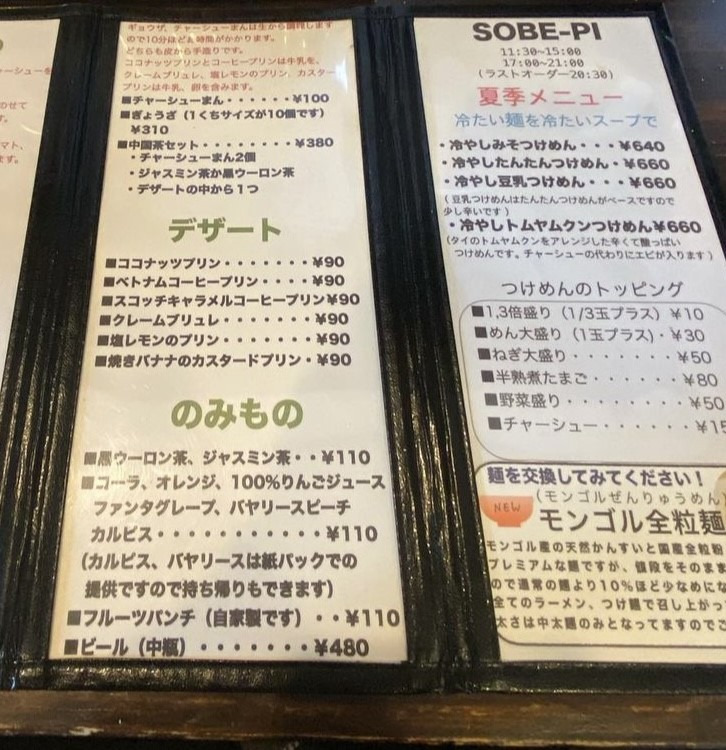 チャーシューを
のせて
す。
マト、
ます。
ギョウザ、チャーシューまんは生から調理します
ので10分ほどお時間がかかります。
どちらも皮から手造りです。
ココナッツプリンとコーヒープリンは牛乳を、
クレームブリュレ、塩レモンのプリン、カスター
プリンは牛乳、卵を含みます。
■チャーシューまん・・・・・・¥100
■ぎょうざ（1くちサイズが10個です）
¥310
■中国茶セット・・・・・・・¥380
・チャーシューまん2個
・ジャスミン茶か黒ウーロン茶
・デザートの中から1つ
デザート
■ココナッツプリン・・・・・・・¥90
■ベトナムコーヒープリン・・・・¥90
■スコッチキャラメルコーヒープリン¥90
■クレームブリュレ・・・・・・・¥90
■塩レモンのプリン・・・・・・・¥90
■焼きバナナのカスタードプリン・¥90
のみもの
■黒ウーロン茶、ジャスミン茶・・¥110
■コーラ、オレンジ、100%りんごジュース
ファンタグレープ、バヤリースピーチ
カルピス・・・・・・・・・・・¥110
（カルピス、バヤリースは紙パックでの
提供ですので持ち帰りもできます）
■フルーツパンチ（自家製です）・・¥110
■ビール（中瓶）・・・・・・・¥480
SOBE-PI
11:30~15:00
17:00~21:00
(ラストオーダー20:30)
夏季メニュー
冷たい麺を冷たいスープで
・冷やしみそつけめん・・・¥640
・冷やしたんたんつけめん・¥660
・冷やし豆乳つけめん・・・¥660
（豆乳つけめんはたんたんつけめんがベースですので
少し辛いです）
・冷やしトムヤムクンつけめん¥660
（タイのトムヤムクンをアレンジした辛くて酸っぱい
つけめんです。チャーシューの代わりにエビが入ります）
つけめんのトッピング
■1,3倍盛り（1/3玉プラス）¥10
■めん大盛り（1玉プラス）・¥30
■ねぎ大盛り・・・・・・・¥50
■半熟煮たまご・・・・・・¥80
■野菜盛り・・・・・・・・¥50
■チャーシュー・・・・・・¥15
麺を交換してみてください！
NEW
（モンゴルぜんりゅうめん
モンゴル全粒麺
モンゴル産の天然かんすいと国産全粒粉
プレミアムな麺ですが、値段をそのまま
ので通常の麺より10%ほど少なめにな
全てのラーメン、つけ麺で召し上がっ
太さは中太麺のみとなってますのでご